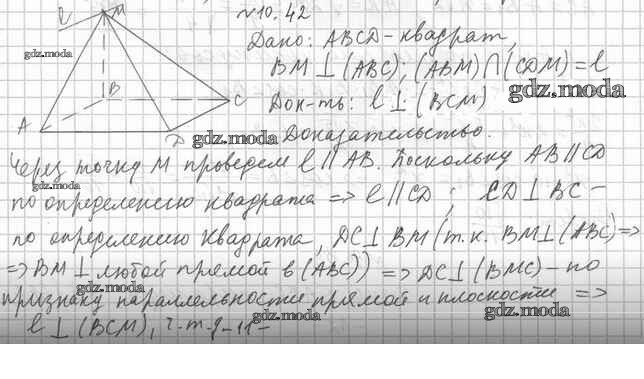 №10.42
Дано: ABCD-квадрат,
BM⊥(ABC); (ABM)∩(CDM)=l
Док-ть: l⊥(BCM)
Доказательство.
Через точку M проведем l||AB. Поскольку AB||CD
по определению квадрата => l||CD; CD⊥BC-
по определению квадрата, DC⊥BM(т.к. BM⊥(ABC)=>
=>BM⊥любой прямой в (ABC)) => DC⊥(BMC)-по
признаку параллельности прямой и плоскости =>
l⊥(BCM), ч-т-д
l
M
B
C
A
D
gdz.moda
gdz.moda
gdz.moda
gdz.moda
gdz.moda
gdz.moda